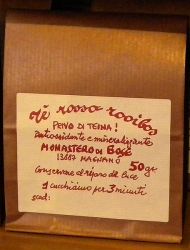 tè rosso rooibos
PRIVO DI TEINA!
Antiossidante e mineralizzante
MONASTERO DI BOSE
13887 MAGNANO
50 gr
Conservare al riparo da luce
1 cucchiaino per 3 minuti
scad: